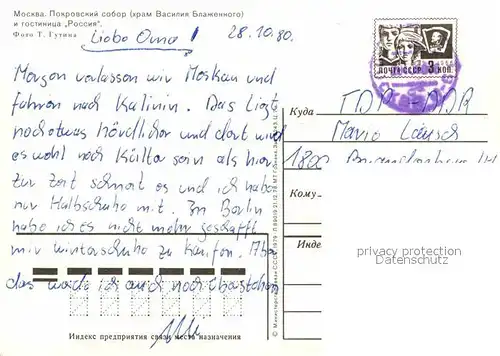 Москва. Покровский собор (храм Василия Блаженного)
и гостиница „Россия".
Фото Т. Гутина
Liebe Oma! 28.10.80.
Morgen verlassen wir Moskau und
fahren nach Kalinin. Das liegt
noch etwas nördlicher und dort wird
es wohl noch kälter sein als hier.
Zur Zeit schneit es und ich habe
nur Halbschuhe mit. In Berlin
habe ich es nicht mehr geschafft
mir Winterschuhe zu kaufen. Aber
das werde ich auch noch überstehen
ПОЧТА СССР 3 КОП
Куда
DDR
Mario
1800
Кому
Индекс
privacy protection
Datenschutz
Индекс предприятия связи места назначения